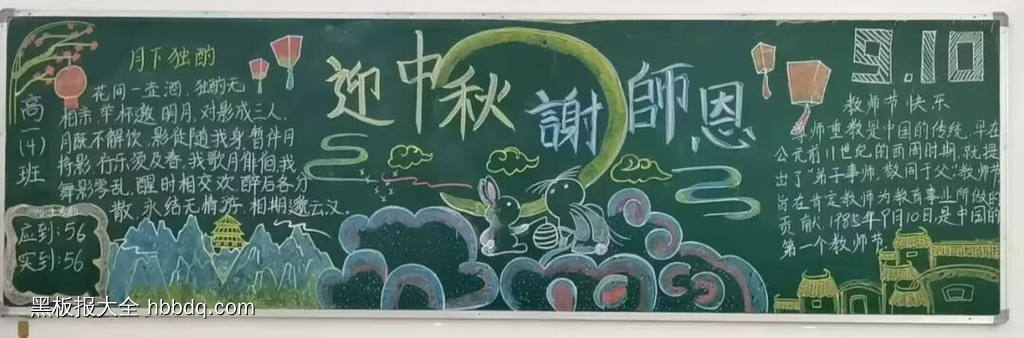 高一(4)班
应到:56
实到:56
月下独酌
花间一壶酒,独酌无
相亲.举杯邀明月,对影成三人.
月既不解饮,影徒随我身.暂伴月
将影,行乐须及春.我歌月徘徊,我
舞影零乱.醒时相交欢,醉后各分
散.永结无情游,相期邈云汉.
迎中秋
謝師恩
9.10
教师节快乐
师重教是中国的传统.早在
公元前11世纪的西周时期,就提
出了"弟子事师,敬同于父".教师节
旨在肯定教师为教育事业所做的
贡献.1985年9月10日,是中国的
第一个教师节
黑板报大全 hbbdq.com